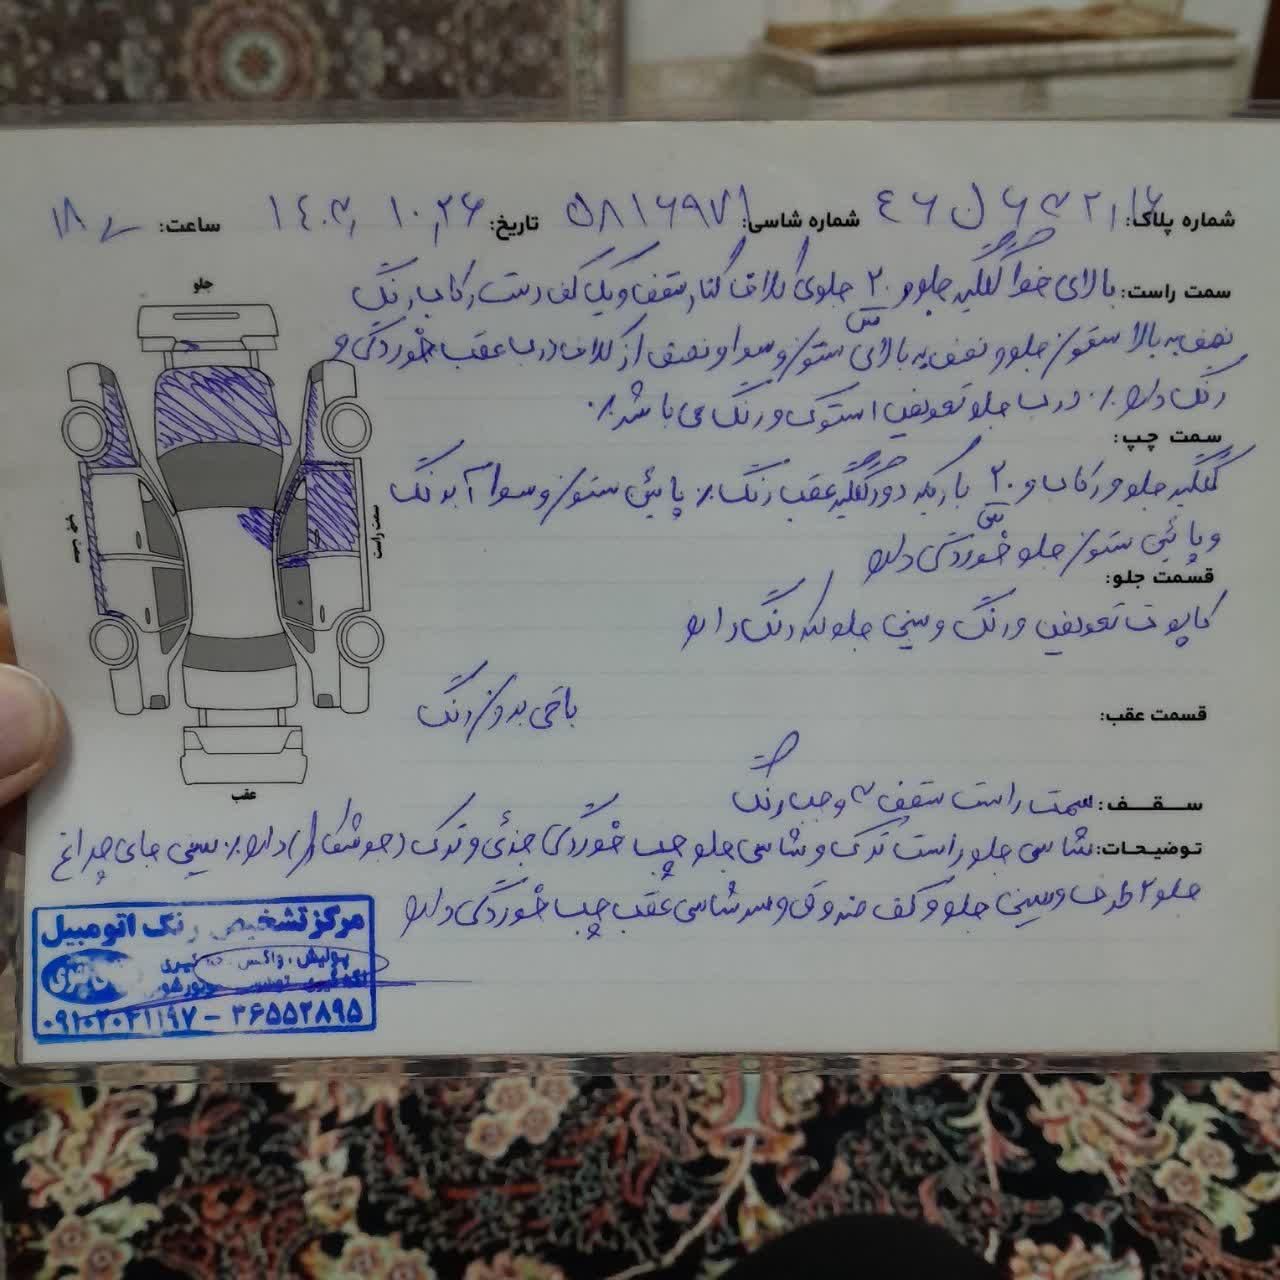 شماره پلاک: ۱۶ ۶۳۲ ل ۴۶ شماره شاسی: ۵۸۱۶۹۷۱ تاریخ: ۱۴۰۳,۱۰,۲۶ ساعت: ۱۸
سمت راست: بالای گلگیر جلو و ۲۰ جلوی اتاق کنار سقف و یک کف دست رکاب رنگ
نصف به بالا ستون جلو و نصف به بالای ستون وسط و نصف از کلاف درب عقب خوردگی و
رنگ دارد٪ درب جلو تعویض استوک و رنگ می باشد٪
سمت چپ:
گلگیر جلو و رکاب و ۲۰ باریکه دور گلگیر عقب رنگ٪ پائین ستون وسط آبرنگ
و پائین ستون جلو خوردگی دارد
قسمت جلو:
کاپوت تعویض و رنگ و سینی جلو لکه رنگ دارد
قسمت عقب: باقی بدون رنگ
سقف: سمت راست سقف ۳ وجب رنگ
توضیحات: شاسی جلو راست ترک و شاسی جلو چپ خوردگی جزئی و ترک (جوشکار) دارد٪ سینی جای چراغ
جلو ۲ طرف و سینی جلو و کف صندوق و سر شاسی عقب چپ خوردگی دارد
جلو
سمت چپ
سمت راست
عقب
مرکز تشخیص رنگ اتومبیل
پولیش، واکس
۰۹۱۰۲۰۲۱۱۹۷ - ۳۶۵۵۲۸۹۵